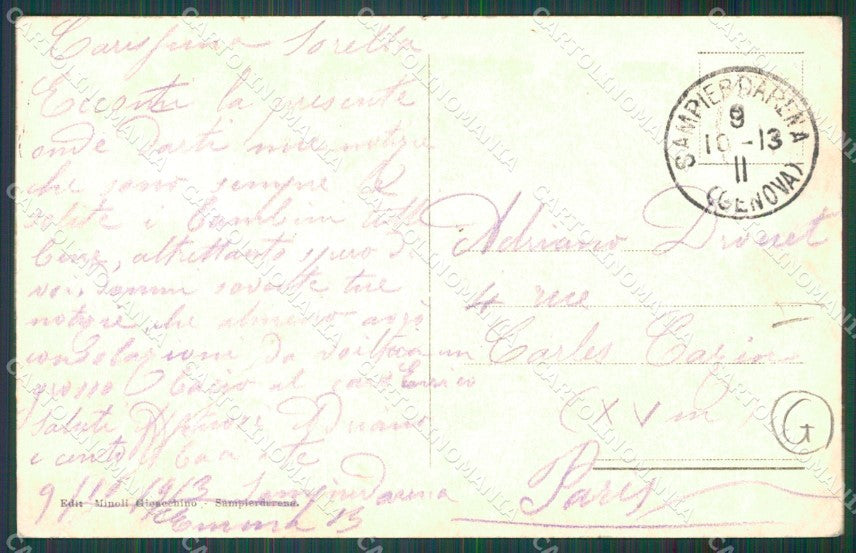 Carissima Sorella
Eccoti la presente
onde darti mie notizie
che sono sempre le
solite i bambini tutti
bene, altrettanto spero di
voi. Dammi sovente tue
notizie che almeno avrò
consolazione da voialtri un
grosso bacio al caro Enrico
saluta Adriano
e cento baci a te
9/11/1913 Sampierdarena
Emma B
Edit Minoli Gioacchino - Sampierdarena.
SAMPIERDARENA
9
10 - 13
11
(GENOVA)
Adriano Drouet
4 rue
Carles
(XVIII)
Paris
G
CARTOLINOMANIA